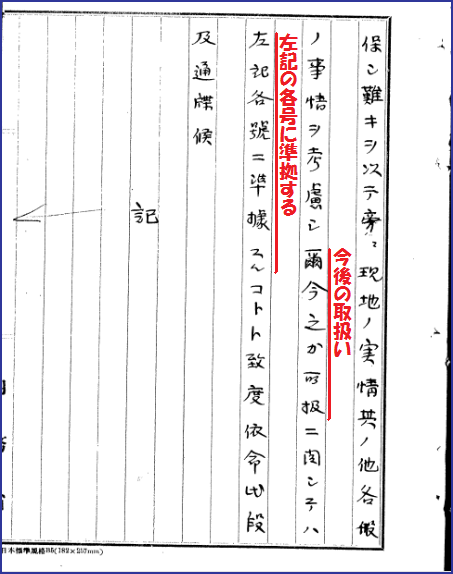 保シ難キヲ以テ旁々現地ノ実情其ノ他各般
今後の取扱い
ノ事情ヲ考慮シ爾今之カ取扱ニ関シテハ
左記の各号に準拠する
左記各號ニ準據スルコトト致度依命此段
及通牒候
記
日本標準規格B5(182×257mm)